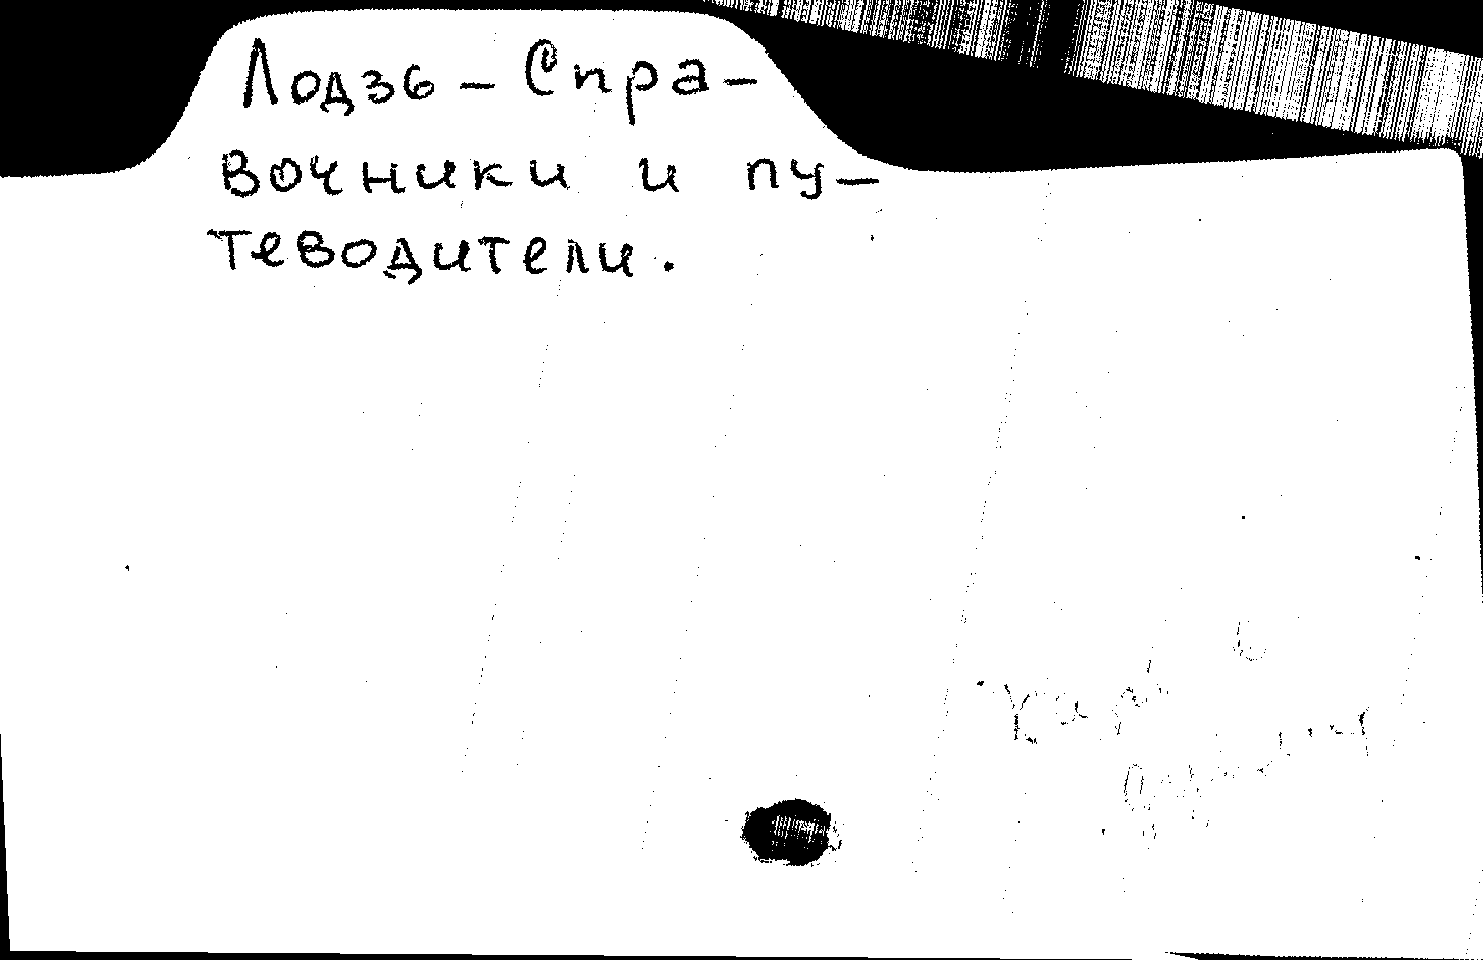 Лодзь – Спра-
вочники и пу-
теводители.